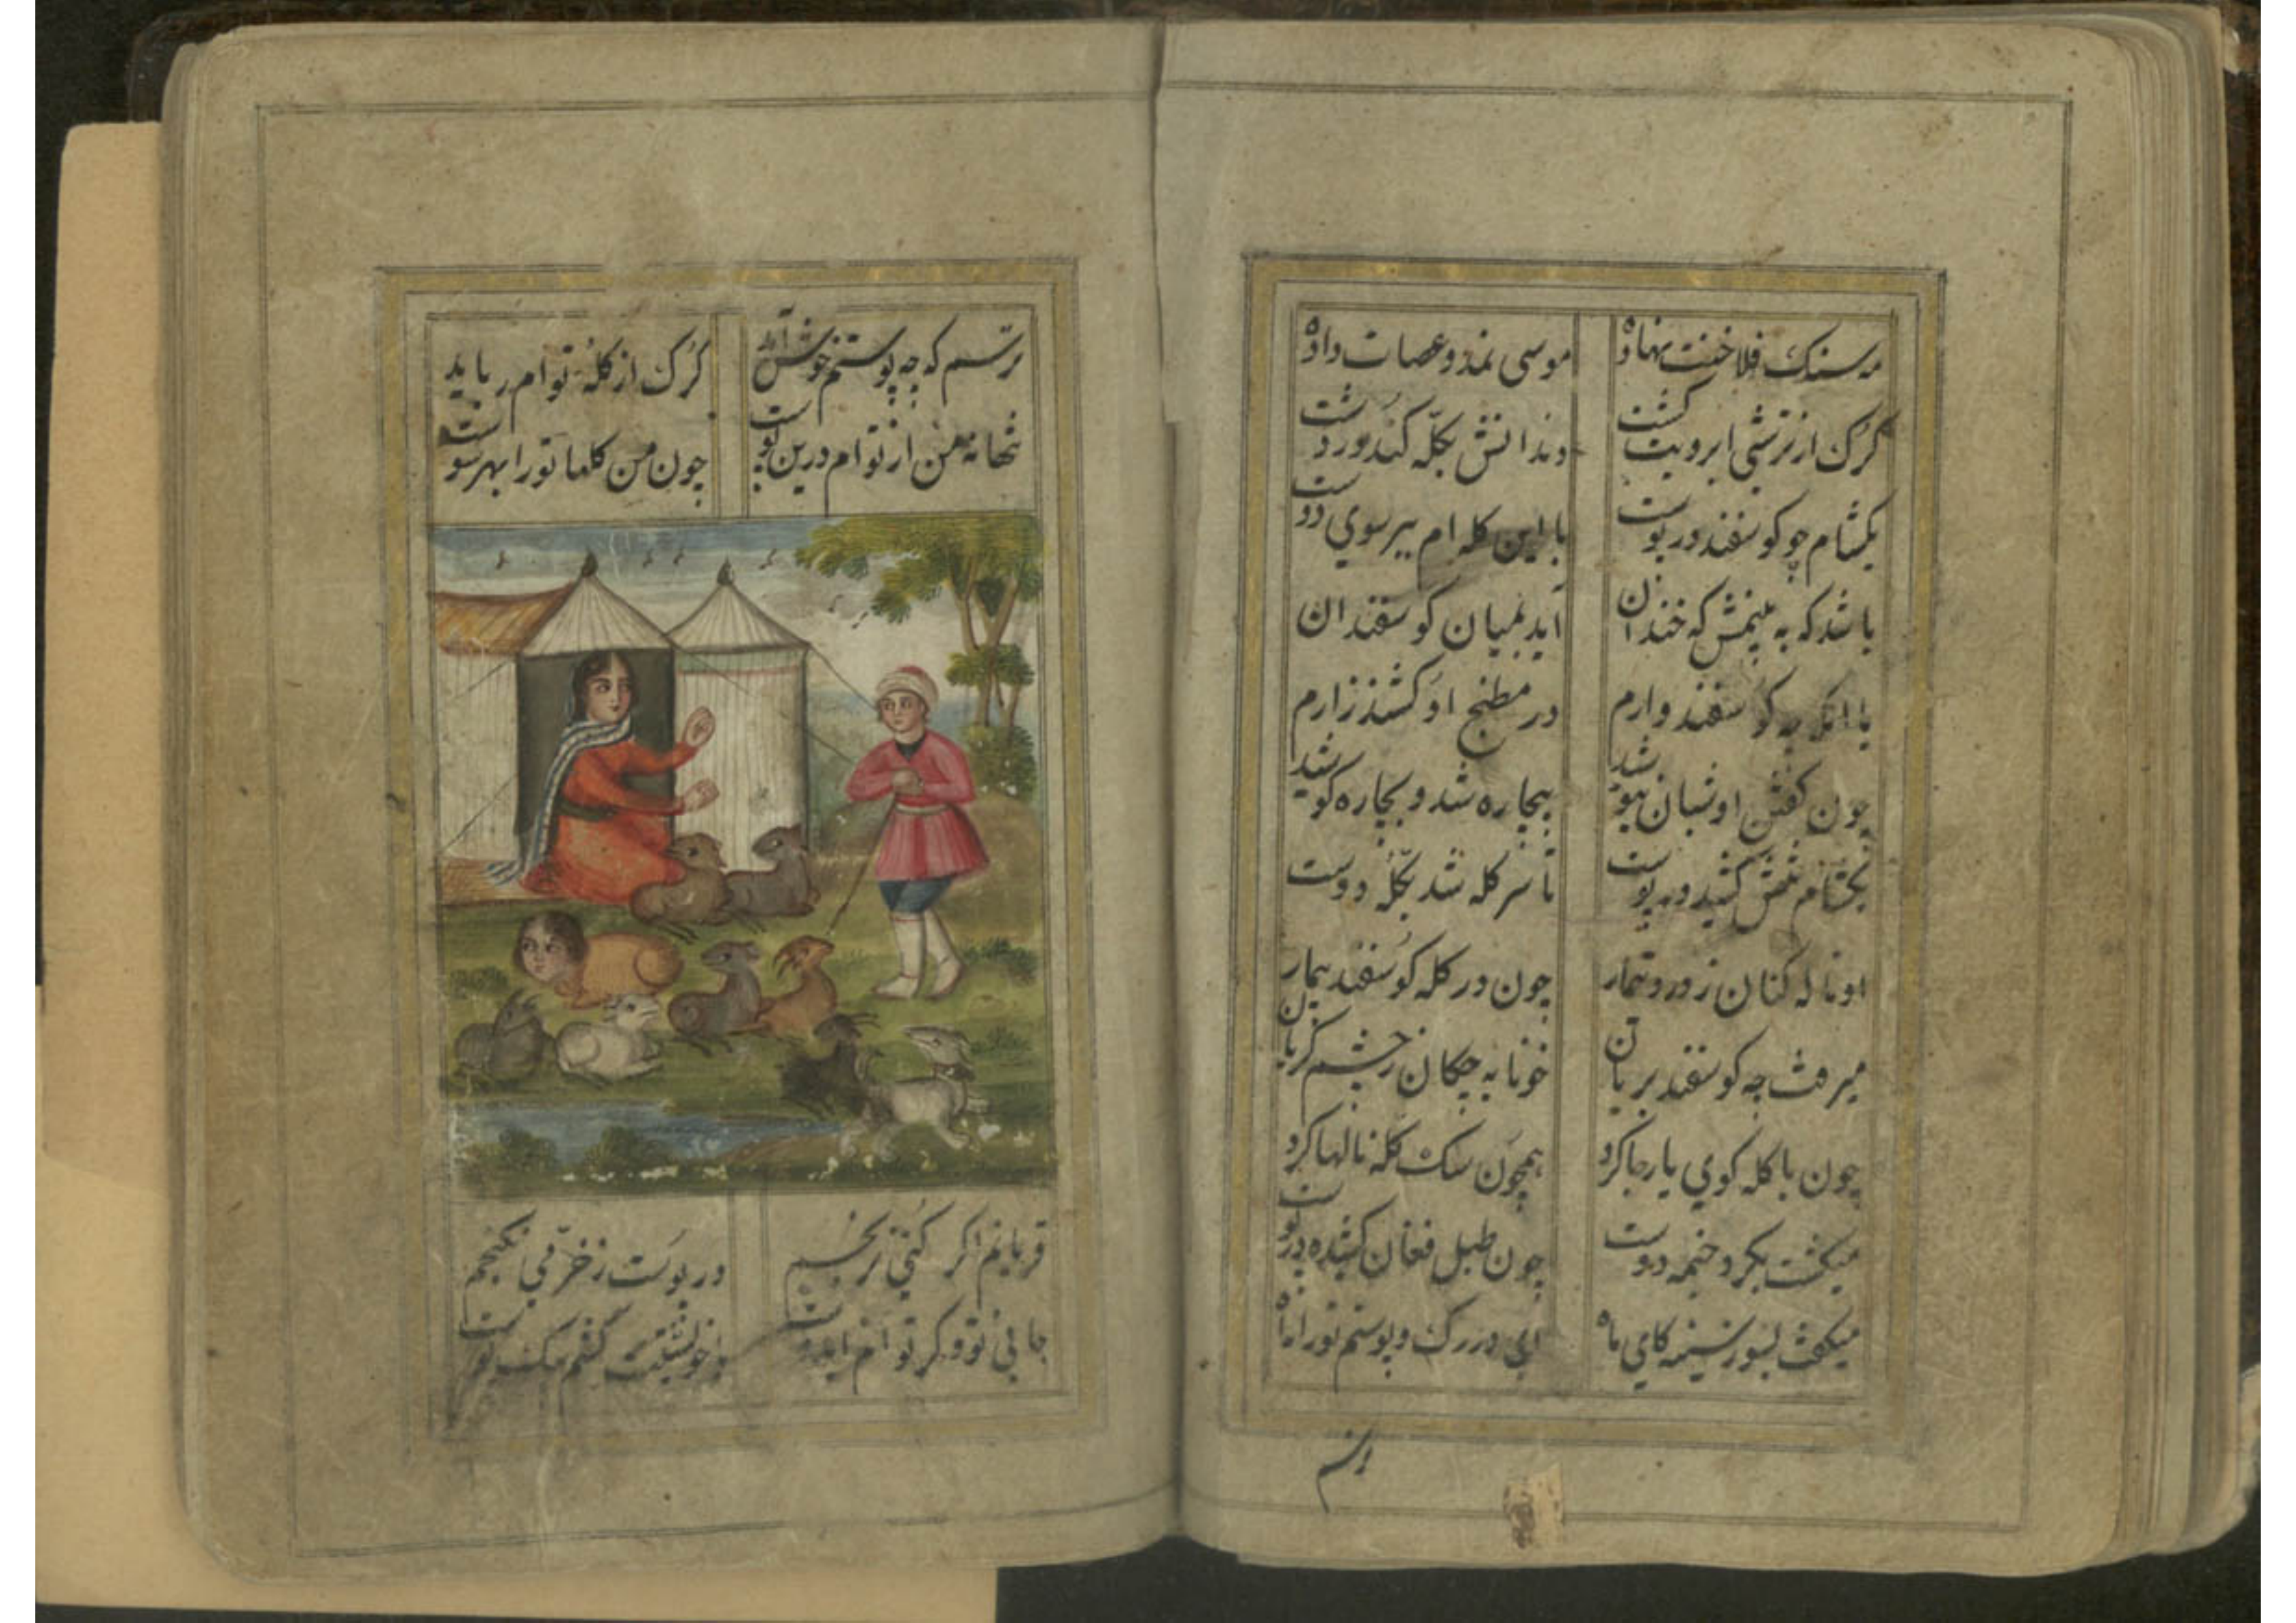 مه سنک فلاخنت نهاده موسی نمد و عصات داده
کرک از ترشی ابرویت کشت دندانش بکله کند
یکشام چو کوسفند در پوست با این کله ام ببر سوی دوست
باشد که به بینمش که خندان آید بمیان کوسفندان
با انکه چه کوسفند وارم در مطبخ او کشند زارم
چون کفتن او شبان نیوشید بیچاره شد و بچاره کوشید
یکشام تنش کشید در پوست تا سر کله شد بکله دوست
او ناله کنان ز درد و تیمار چون در کله کوسفند بیمار
میرفت چه کوسفند بریان خونابه چکان ز چشم کریان
چون با کله کوی یار جا کرد همچون سک کله نالها کرد
میکشت بکرد خیمه دوست چون طبل فغان کشیده در پوست
میکفت بسوز سینه کای ماه ای در رک و پوستم تو را راه
ترسم
ترسم که چه پوستم خوش آید کرک از کله توام رباید
تنها نه من از توام درین پوست چون من کلها تو را بهر سوست
قربانم اکر کنی نرنجم در پوست ز خرمی نکنجم
جانی تو و کر توام